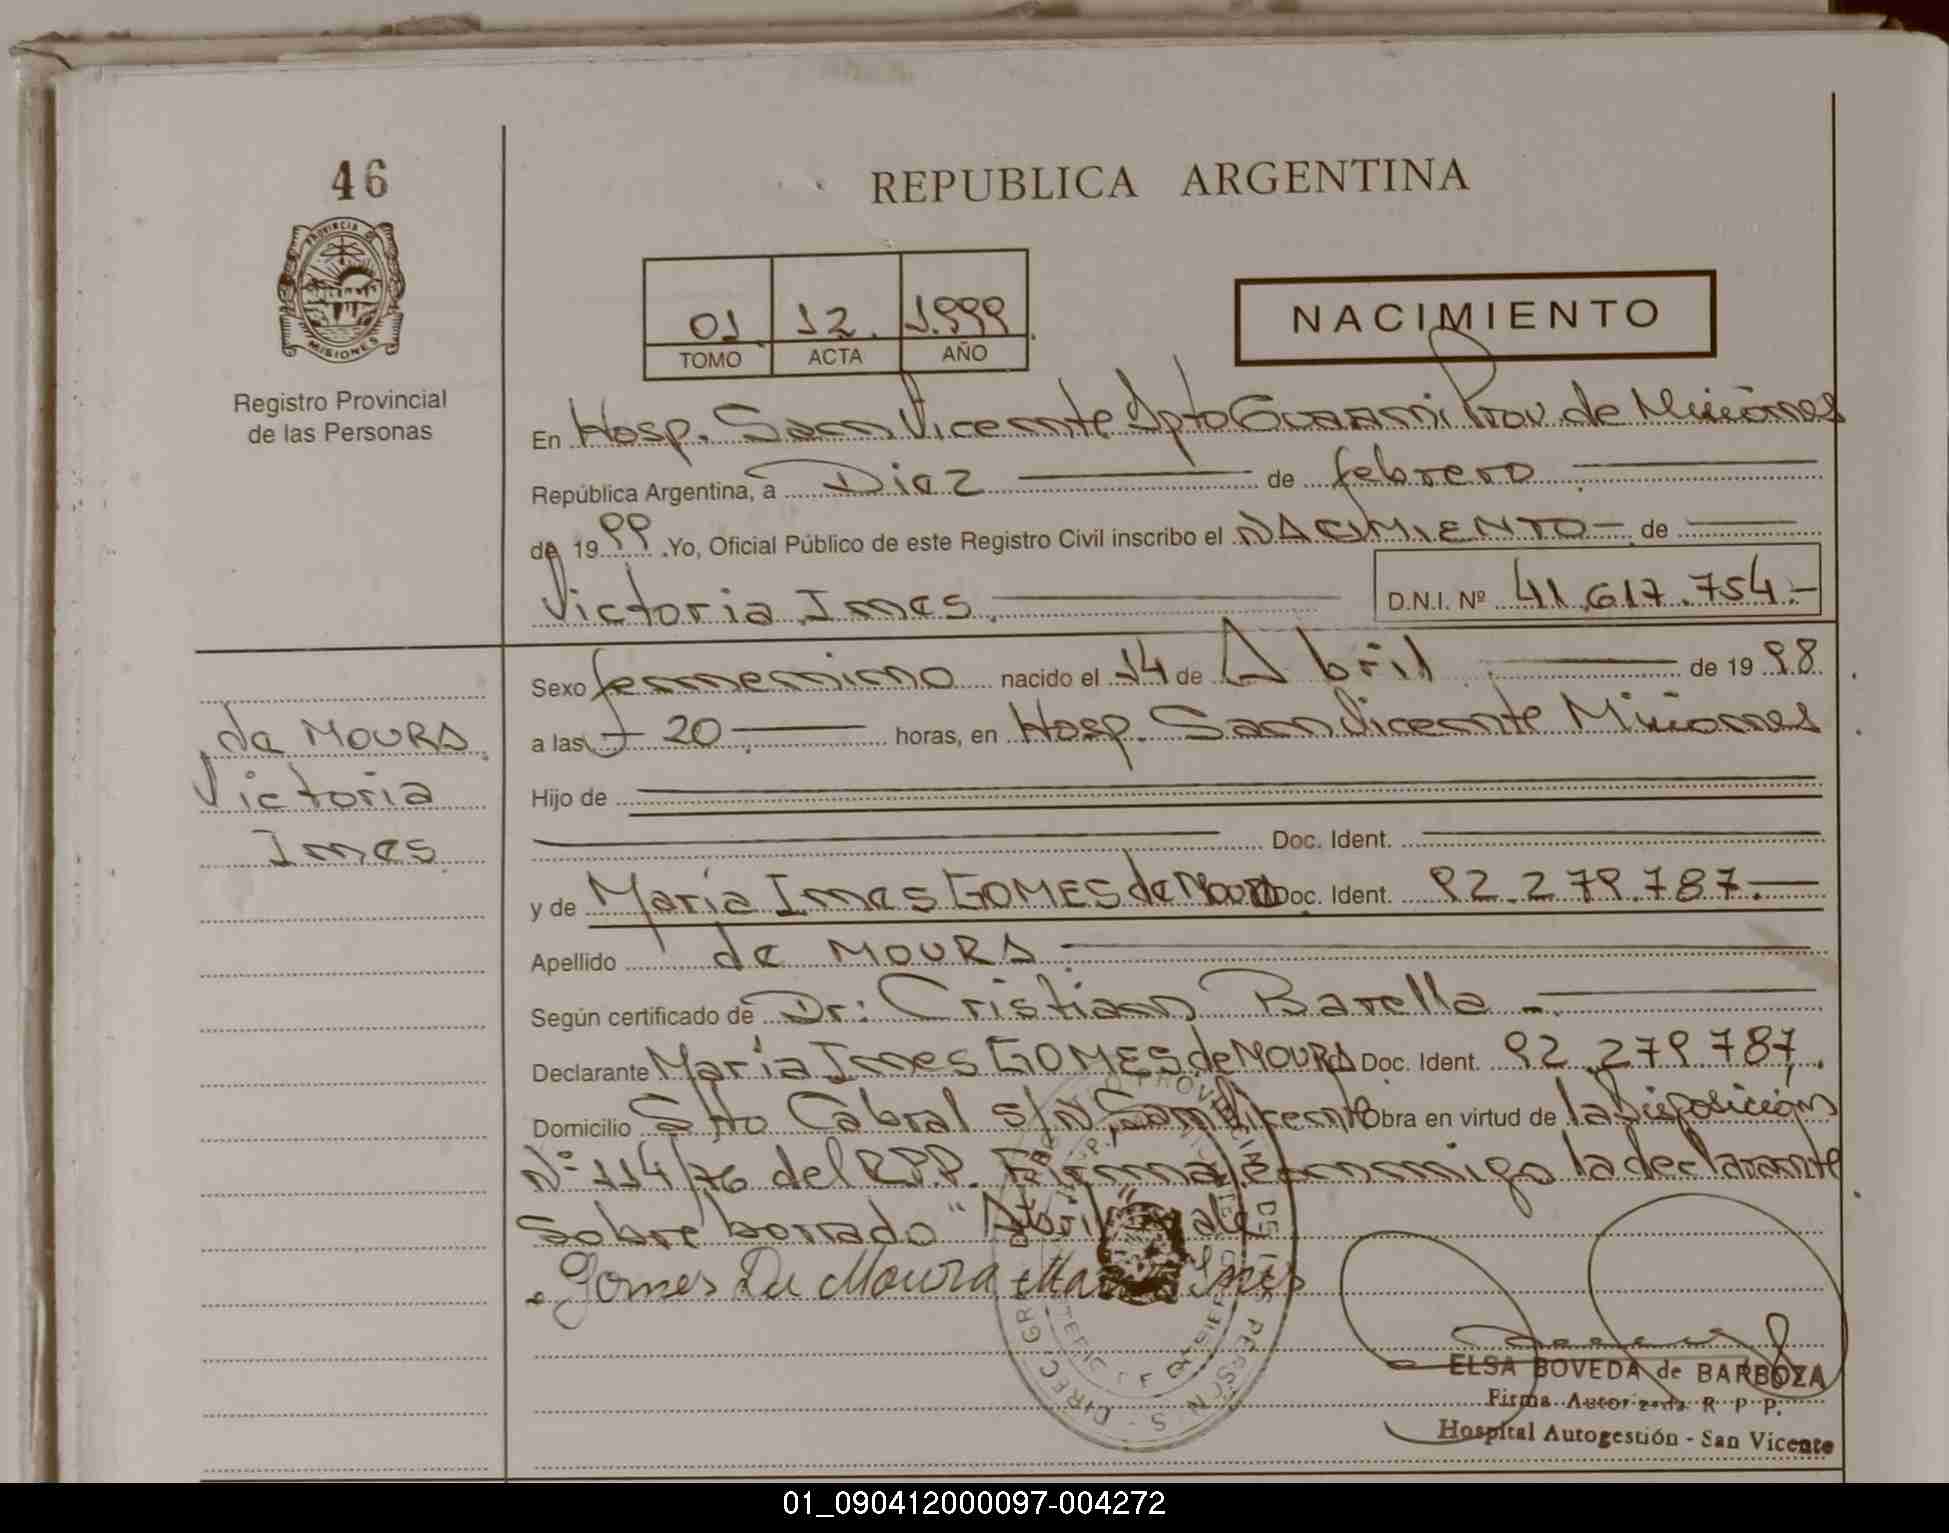 46
PROVINCIA DE
MISIONES
Registro Provincial
de las Personas
REPUBLICA ARGENTINA
01 12. 1.999.
TOMO ACTA AÑO
NACIMIENTO
En Hosp. San Vicente Dpto Guarani Prov. de Misiones
República Argentina, a Diez de febrero
de 1999 .Yo, Oficial Público de este Registro Civil inscribo el NACIMIENTO de
Victoria Ines D.N.I. Nº 41.617.754.-
Sexo femenino nacido el 14 de Abril de 1998
a las 20 horas, en Hosp. San Vicente Misiones
Hijo de
Doc. Ident.
y de María Ines GOMES de Moura Doc. Ident. 92.279.787.
Apellido de MOURA
Según certificado de Dr: Cristian Barella -
Declarante María Ines GOMES de MOURA Doc. Ident. 92.279.787.
Domicilio Sgto Cabral s/N, San Vicente Obra en virtud de la Disposición
Nº 114/76 del R.P.P. Firma conmigo la declarante
sobre borrado "Abril" vale
Gomes De Moura Maria Ines
de MOURA
Victoria
Ines
ELSA BOVEDA de BARBOZA
Firma Autorizada R P P.
Hospital Autogestión - San Vicente
01_090412000097-004272